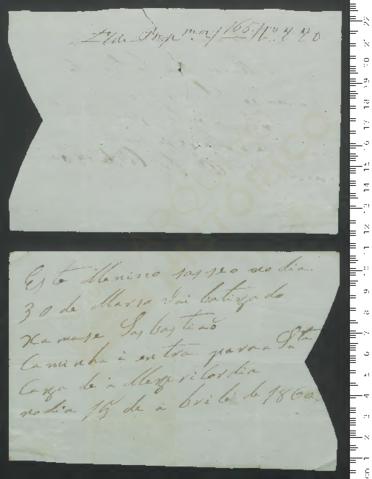 165
Este Menino nasseo no dia
30 de Marso vai batizado
xamase Sabastião
Caminha i entra para a Sta
Caza de a Mezericordia
no dia 15 de a bril de 1860